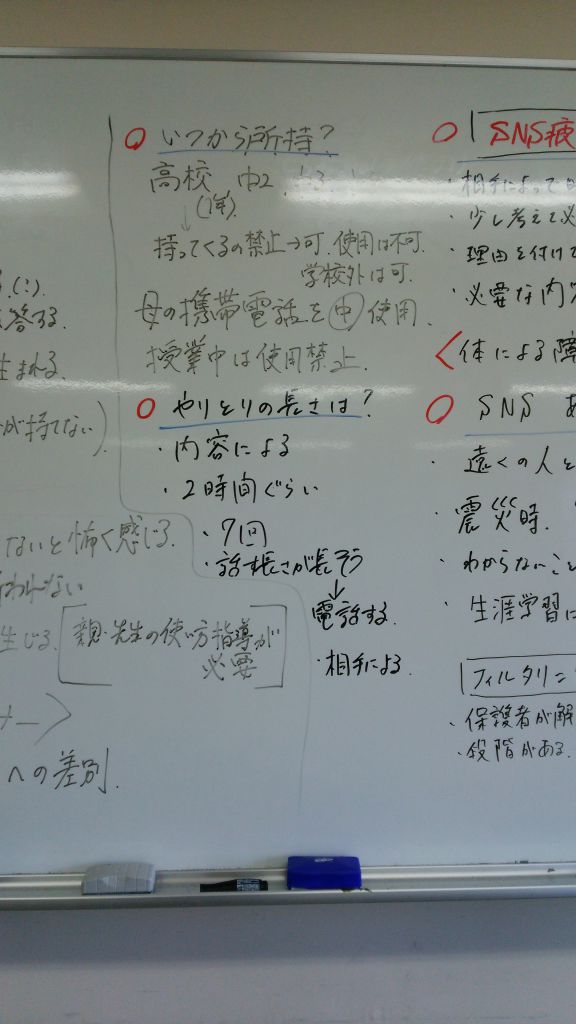 いつから所持?
高校 中2
(1年).
↓
持ってくるの禁止→可. 使用は不可.
学校外は可.
母の携帯電話を㊥使用.
授業中は使用禁止.
やりとりの長さは?
・内容による
・2時間ぐらい
・7回
長さが長そう
↓
電話する.
・相手による.
答する.
生まれる
が持てない)
ないと怖く感じる.
われない
生じる.
[親・先生の使い方指導が
必要]
への差別.
SNS疲
・相手によって
・少し考えて必
・理由を付けて
・必要な内容
<体による障
SNS あ
・遠くの人と
・震災時.
・わからないこと
・生涯学習に
フィルタリン
・保護者が解
・段階がある.